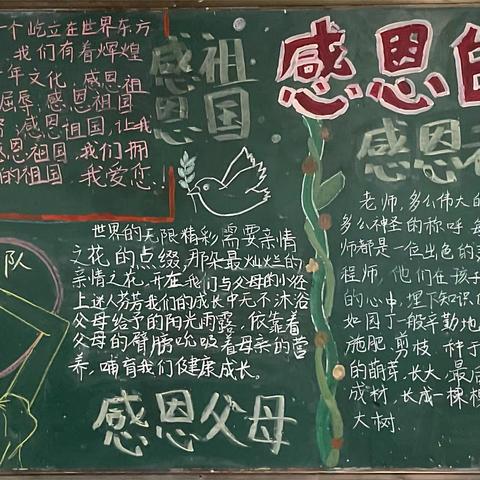 一个屹立在世界东方
我们有着辉煌
年文化;感恩祖
屈辱;感恩祖国
;感恩祖国,让我
感恩祖国,我们拥
的祖国,我爱您!
感恩祖国
感恩的
感恩老
队
世界的无限精彩需要亲情
之花的点缀,那朵最灿烂的
亲情之花,开在我们与父母的小径
上迷人芬芳我们的成长中无不沐浴
父母给予的阳光雨露,依靠着
父母的臂膀吮吸着母亲的营
养,哺育我们健康成长。
感恩父母
老师,多么伟大的
多么神圣的称呼 每
师都是一位出色的
程师,他们在孩子
的心中,埋下知识的
如园丁一般辛勤地
施肥,剪枝,种子
的萌芽,长大,最后
成材,长成一棵棵
大树.